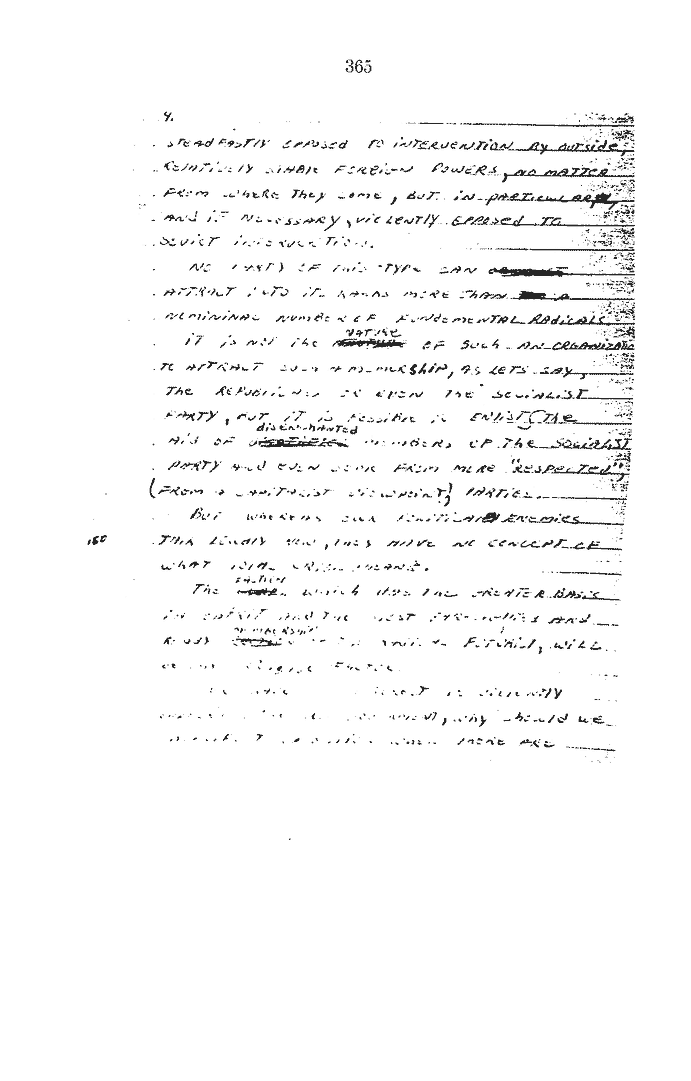 365
4.
STEADFASTLY OPPOSED TO INTERVENTION BY OUTSIDE,
RELATIVELY STABLE FOREIGN POWERS, NO MATTER
FROM WHERE THEY COME, BUT IN PARTICULAR,
AND IF NECESSARY, VIOLENTLY OPPOSED TO
SOVIET INTERVENTION.
NO PARTY OF THIS TYPE CAN
ATTRACT INTO ITS RANKS MORE THAN A
NOMININAL NUMBER OF FUNDEMENTAL RADICALS
IT IS NOT THE NATURE OF SUCH AN ORGANIZATIO
TO ATTRACT SUCH A MEMBERSHIP, AS LETS SAY,
THE REPUBLICANS OR EVEN THE SOCIALIST
PARTY, BUT IT IS POSSIBLE TO ENLIST (THE
AID OF DISENCHANTED MEMBERS OF THE SOCIALIST
PARTY AND EVEN SOME FROM MORE "RESPECTED",
(FROM A CAPITALIST VIEWPOINT) PARTIES.
BUT WHEREAS OUR POLITICAL ENEMIES
150 TALK LOUDLY NOW, THEY HAVE NO CONCEPT OF
WHAT TOTAL CRISIS MEANS.
THE FACTION WHICH HAS THE GREATER BASIS
IN SPIRIT AND THE MOST AND
READY MEMBERSHIP OF THE FUTURE, WILL
BE THE FACTOR.
VIOLENTLY
WHY SHOULD WE
WHEN THERE ARE